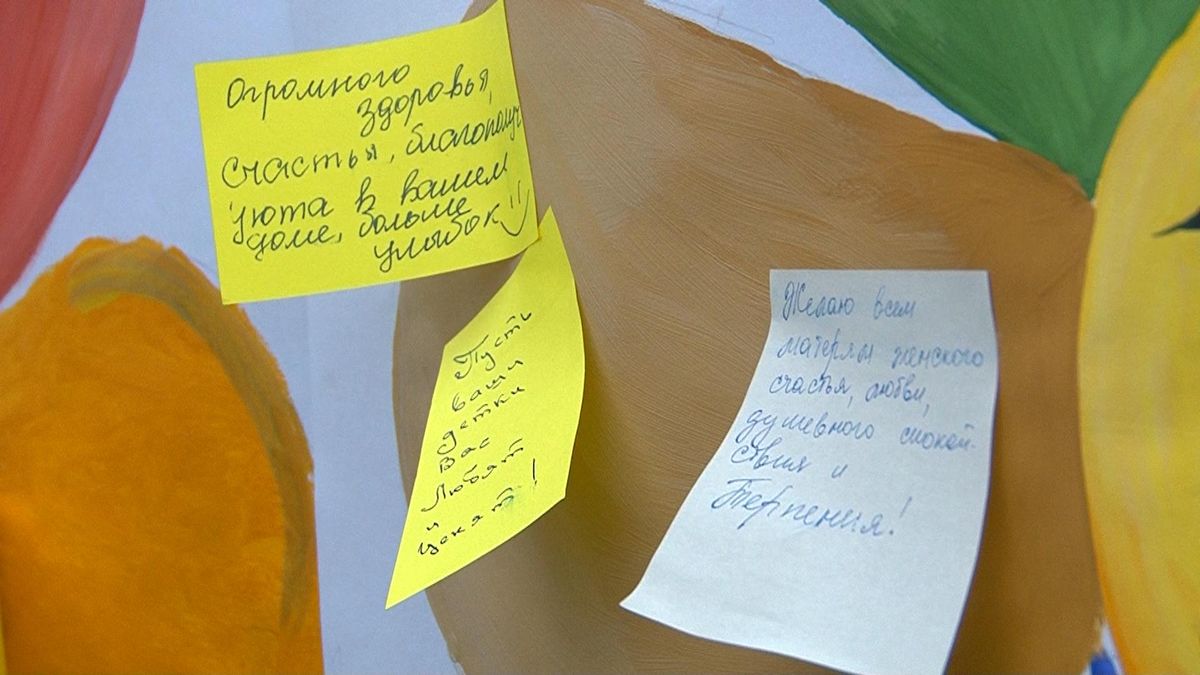 Огромного
здоровья,
счастья, благополуч
уюта в вашем
доме, больше
улыбок
Пусть
ваши
детки
вас
любят
и
ценят!
Желаю всем
матерям женского
счастья, любви,
душевного спокой-
ствия и
Терпения!